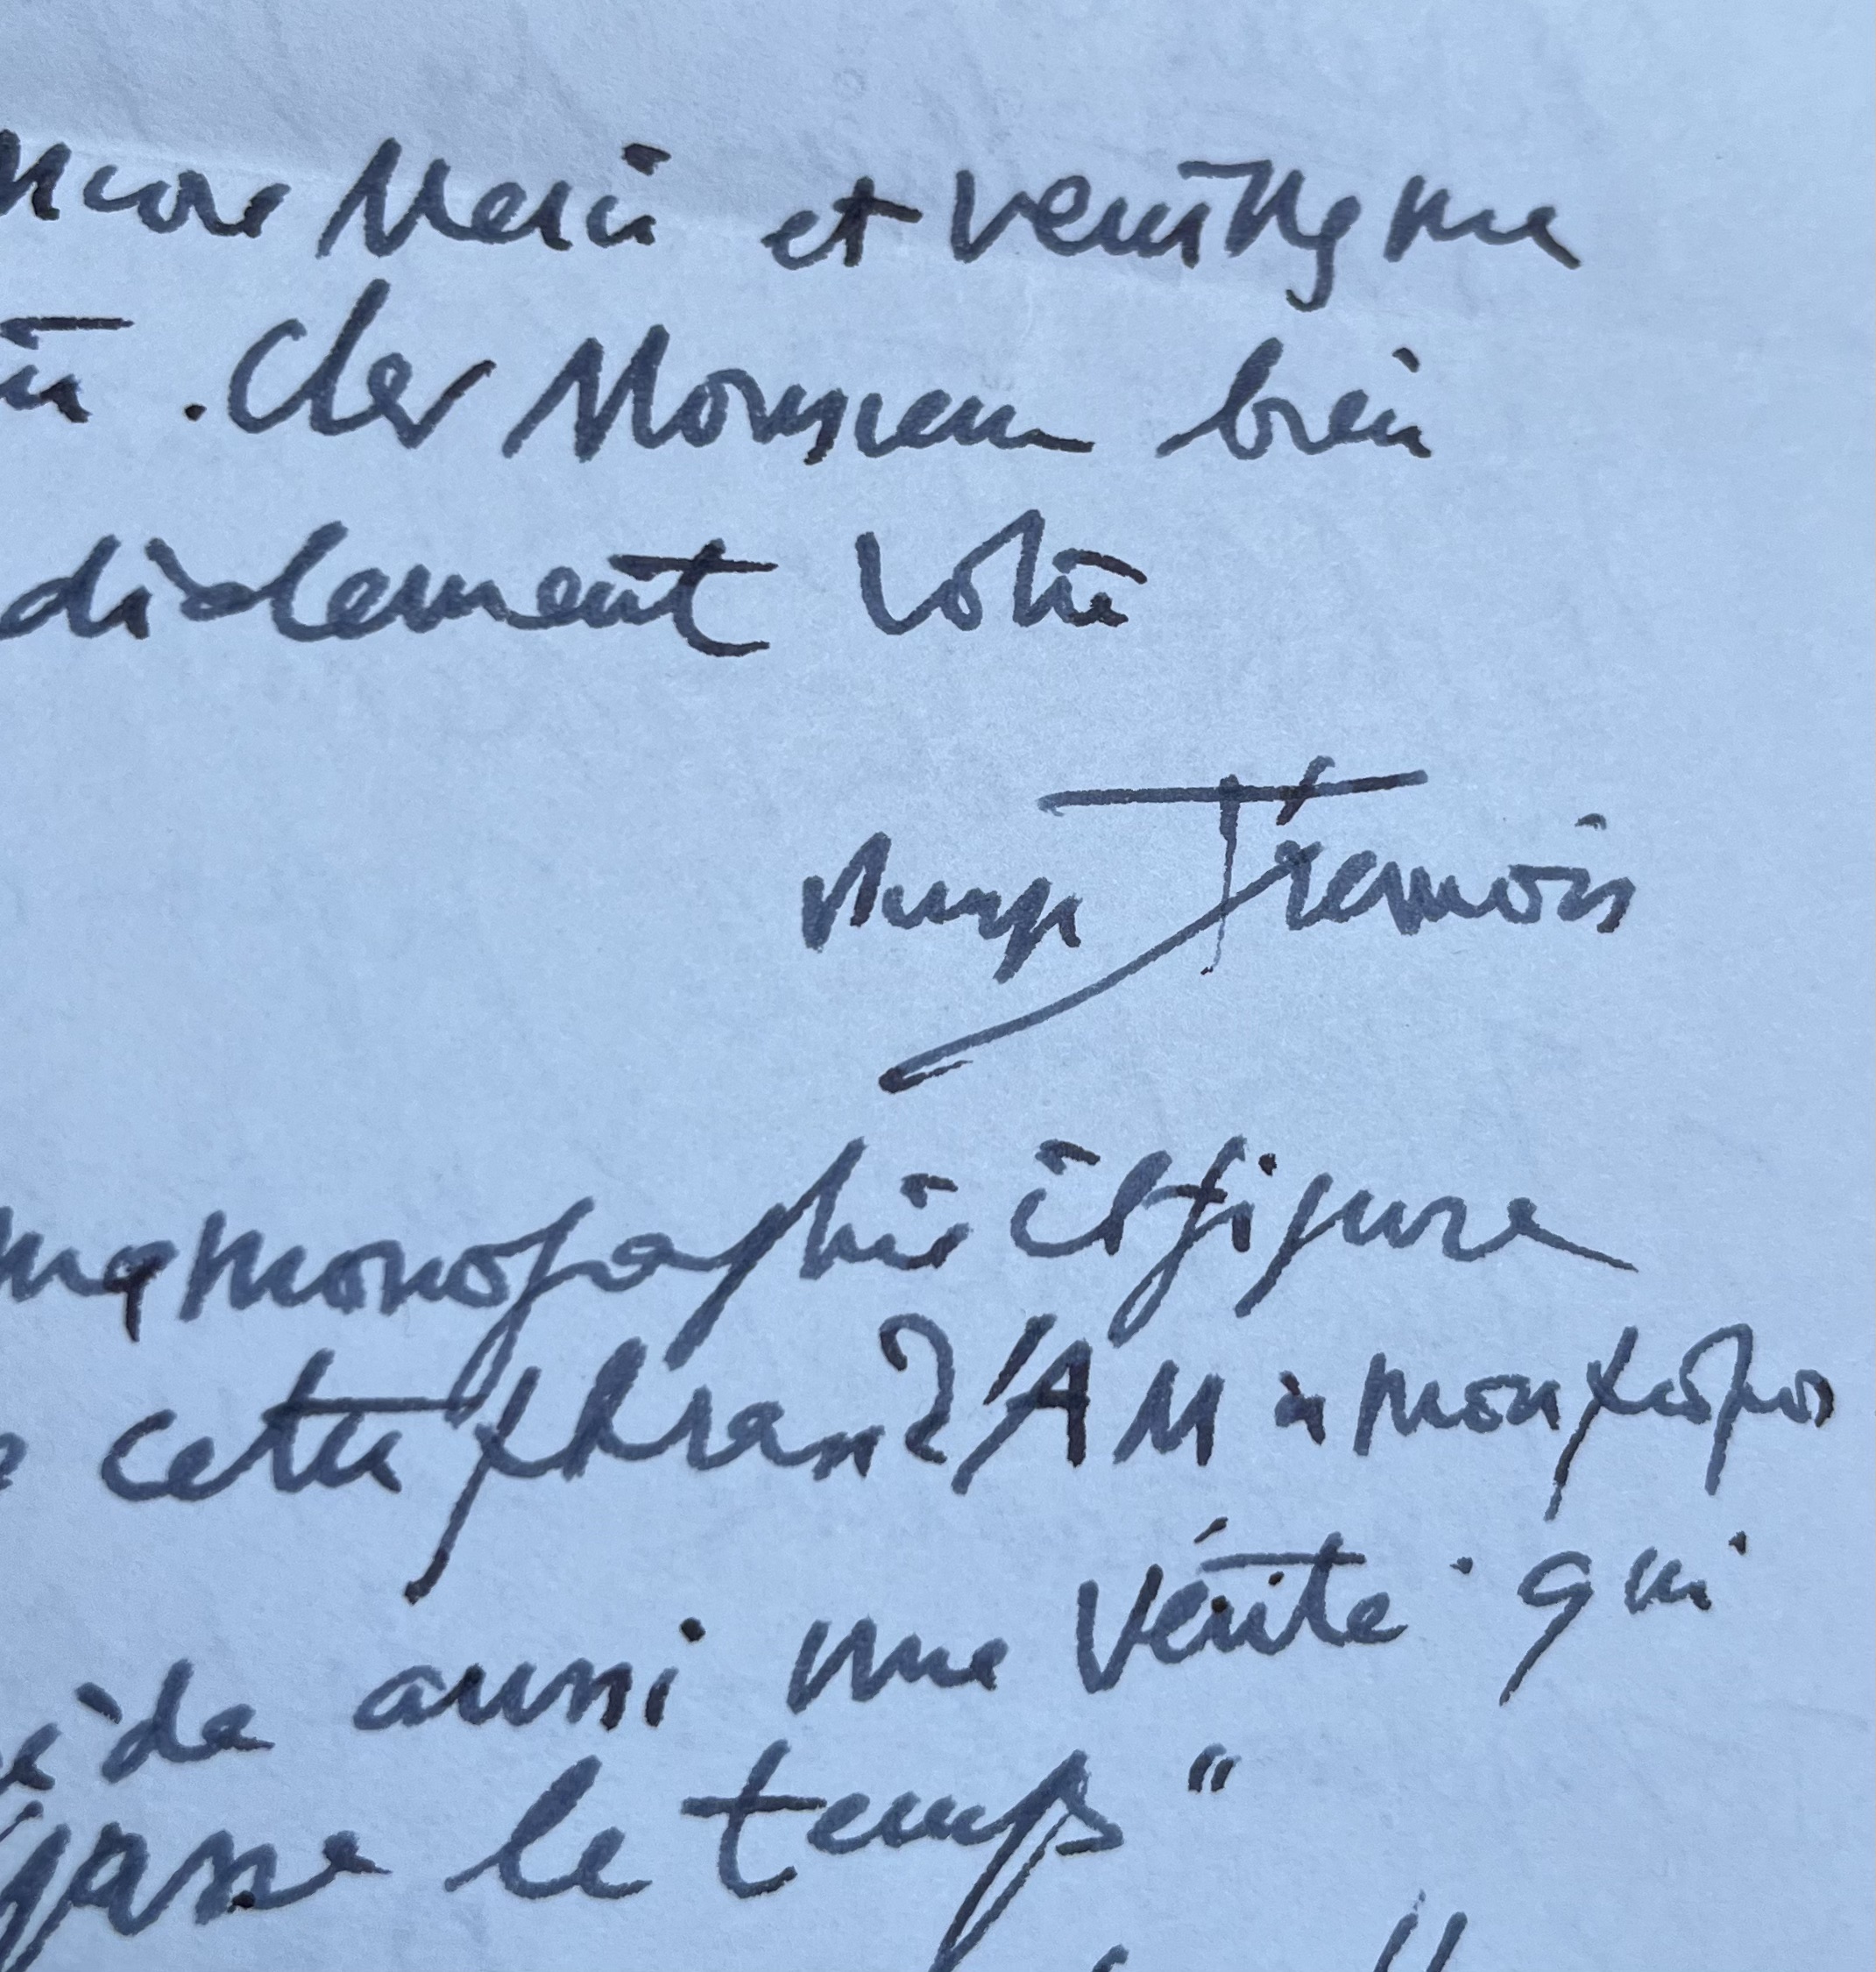 ncore Merci et veuillez me
. Cher Monsieur bien
dialement Votre
Trémois
ma monographie il figure
cette phrase d'AM à mon propos
ède aussi une vérité qui
passe le temps"